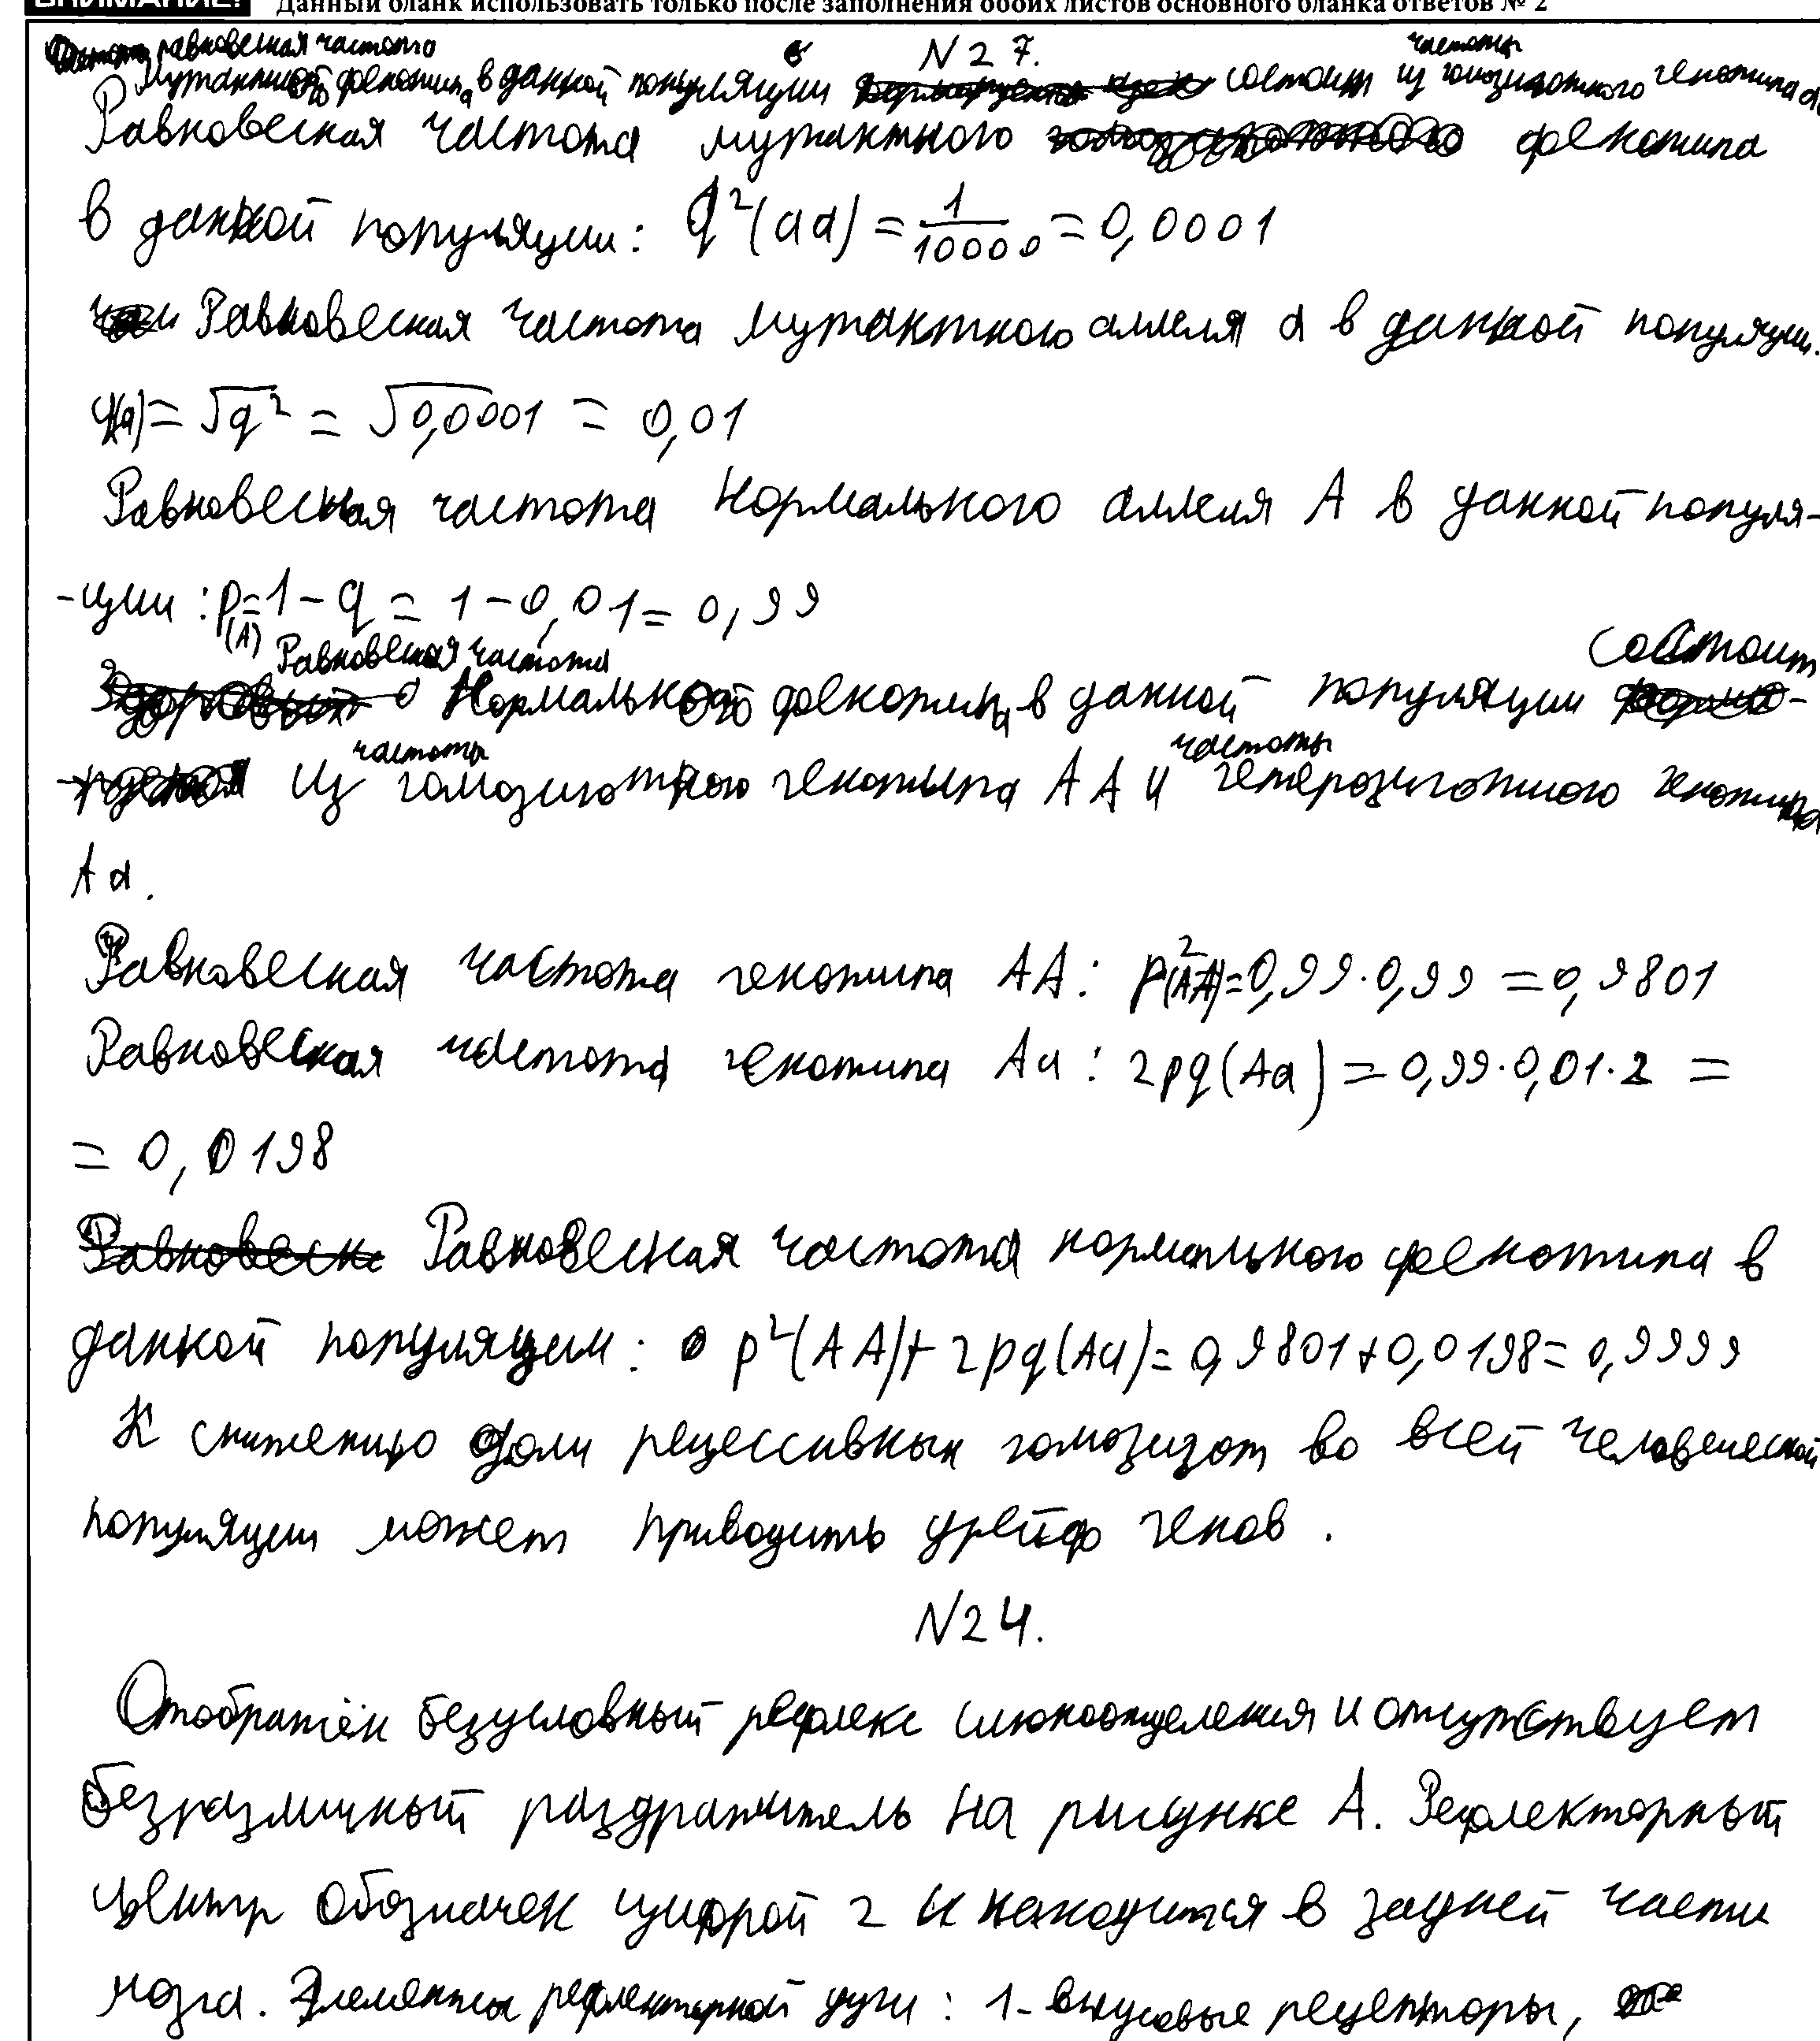 ВНИМАНИЕ! Данный бланк использовать только после заполнения обоих листов основного бланка ответов № 2
N27.
равновесная частота
мутантного фенотипа в данной популяции состоит из частоты гомозиготного генотипа aa
Равновесная частота мутантного фенотипа
в данной популяции: q²(aa) = 1/10000 = 0,0001
Равновесная частота мутантного аллеля a в данной популяции.
q(a) = √q² = √0,0001 = 0,01
Равновесная частота нормального аллеля А в данной популя-
-ции: p(A) = 1 - q = 1 - 0,01 = 0,99
Равновесная частота нормального фенотипа в данной популяции состоит
из частоты гомозиготного генотипа АА и частоты гетерозиготного генотипа
Aa.
Равновесная частота генотипа АА: p²(AA) = 0,99·0,99 = 0,9801
Равновесная частота генотипа Аа: 2pq(Aa) = 0,99·0,01·2 =
= 0,0198
Равновесная частота нормального фенотипа в
данной популяции: p²(AA) + 2pq(Aa) = 0,9801 + 0,0198 = 0,9999
К снижению доли рецессивных гомозигот во всей человеческой
популяции может приводить дрейф генов.
N24.
Отображён безусловный рефлекс слюноотделения и отсутствует
безразличный раздражитель на рисунке А. Рефлекторный
центр обозначен цифрой 2 и находится в задней части
мозга. Элементы рефлекторной дуги: 1-вкусовые рецепторы,